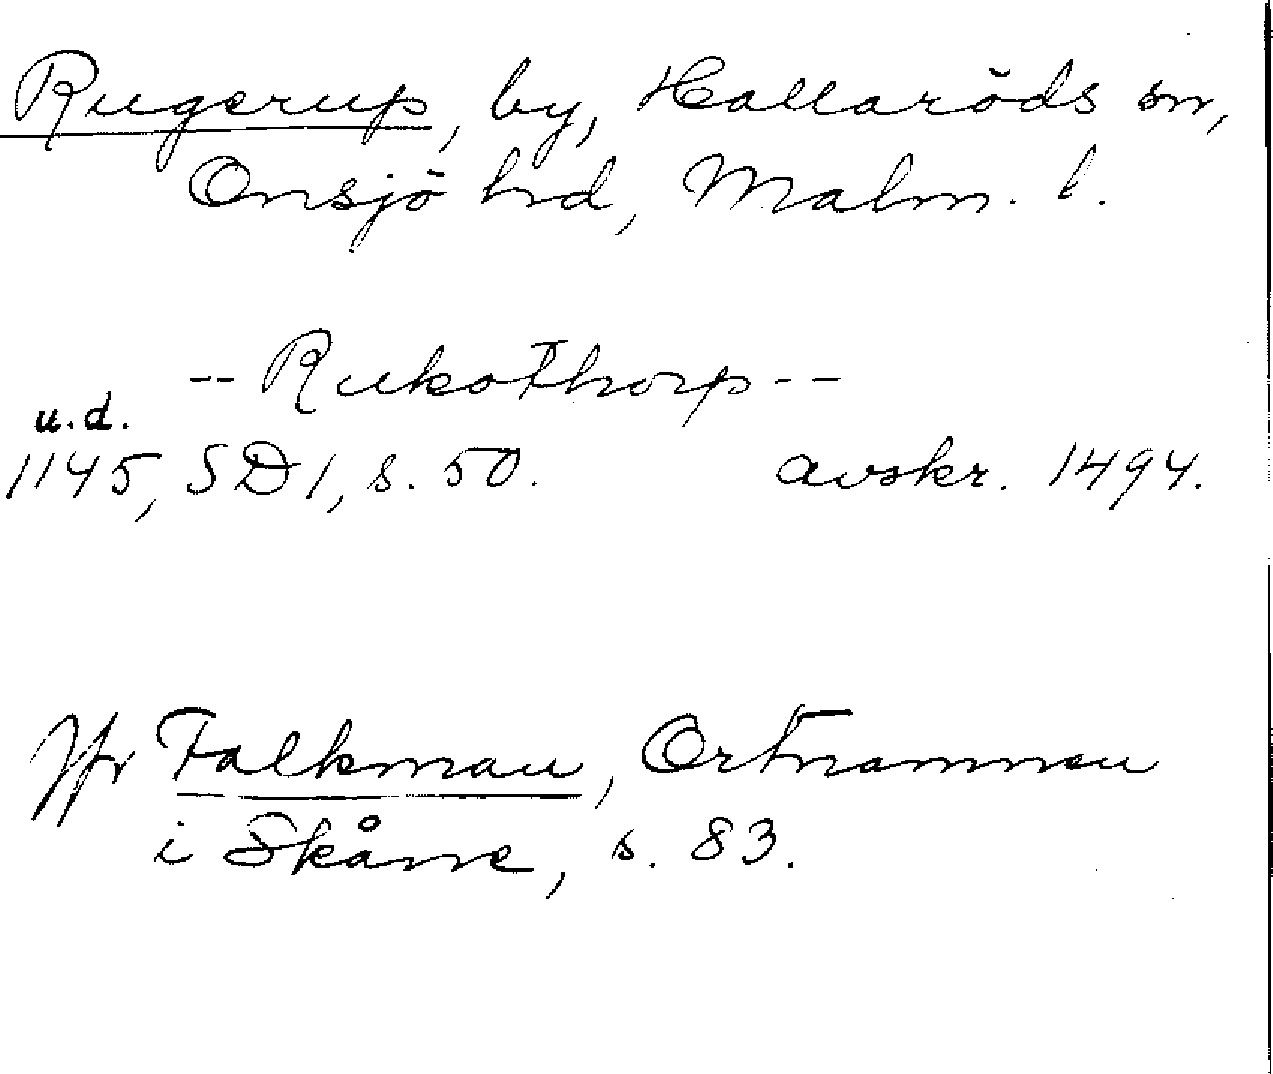 Rugerup, by, Hallaröds sn,
Onsjö hrd, Malm. l.
-- Rukathorp --
u.d.
1145, SD 1, s. 50. avskr. 1494.
Jfr Falkman, Ortnamnen
i Skåne, s. 83.